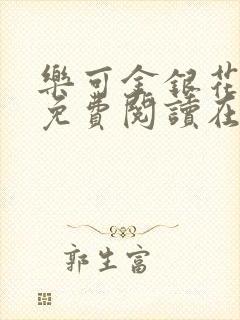 樂可金銀花
免費閱讀在
郭生富